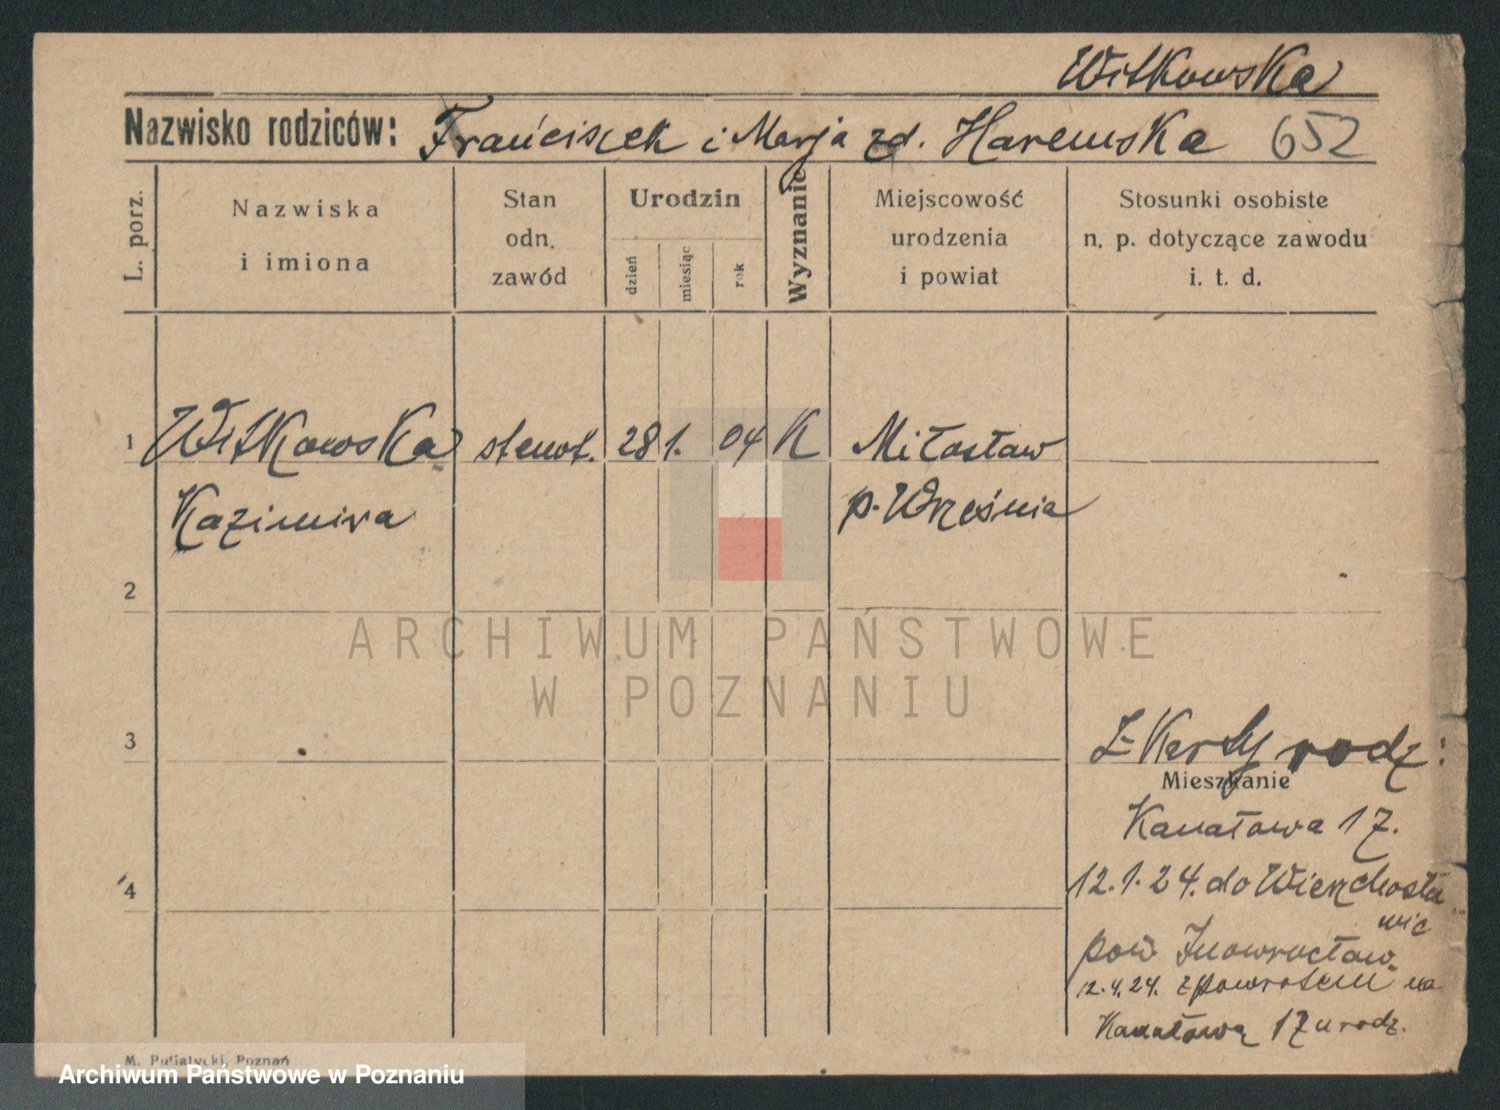 Witkowska
Nazwisko rodziców: Franciszek i Marja zd. Haremska 652
L. porz.
Nazwiska
i imiona
Stan
odn.
zawód
Urodzin
dzień
miesiąc
rok
Wyznanie
Miejscowość
urodzenia
i powiat
Stosunki osobiste
n. p. dotyczące zawodu
i. t. d.
1 Witkowska stenot. 28 1. 04 K Miłosław
Kazimira p. Września
2
ARCHIWUM PAŃSTWOWE
W POZNANIU
3
Z Karty rodz:
Mieszkanie
Kanałowa 17.
4
12.1.24. do Wierzchosła
wic
pow Inowrocław.
12.4.24. z powrotem na
Kanałową 17 u rodz.
M. Putiatycki, Poznań
Archiwum Państwowe w Poznaniu